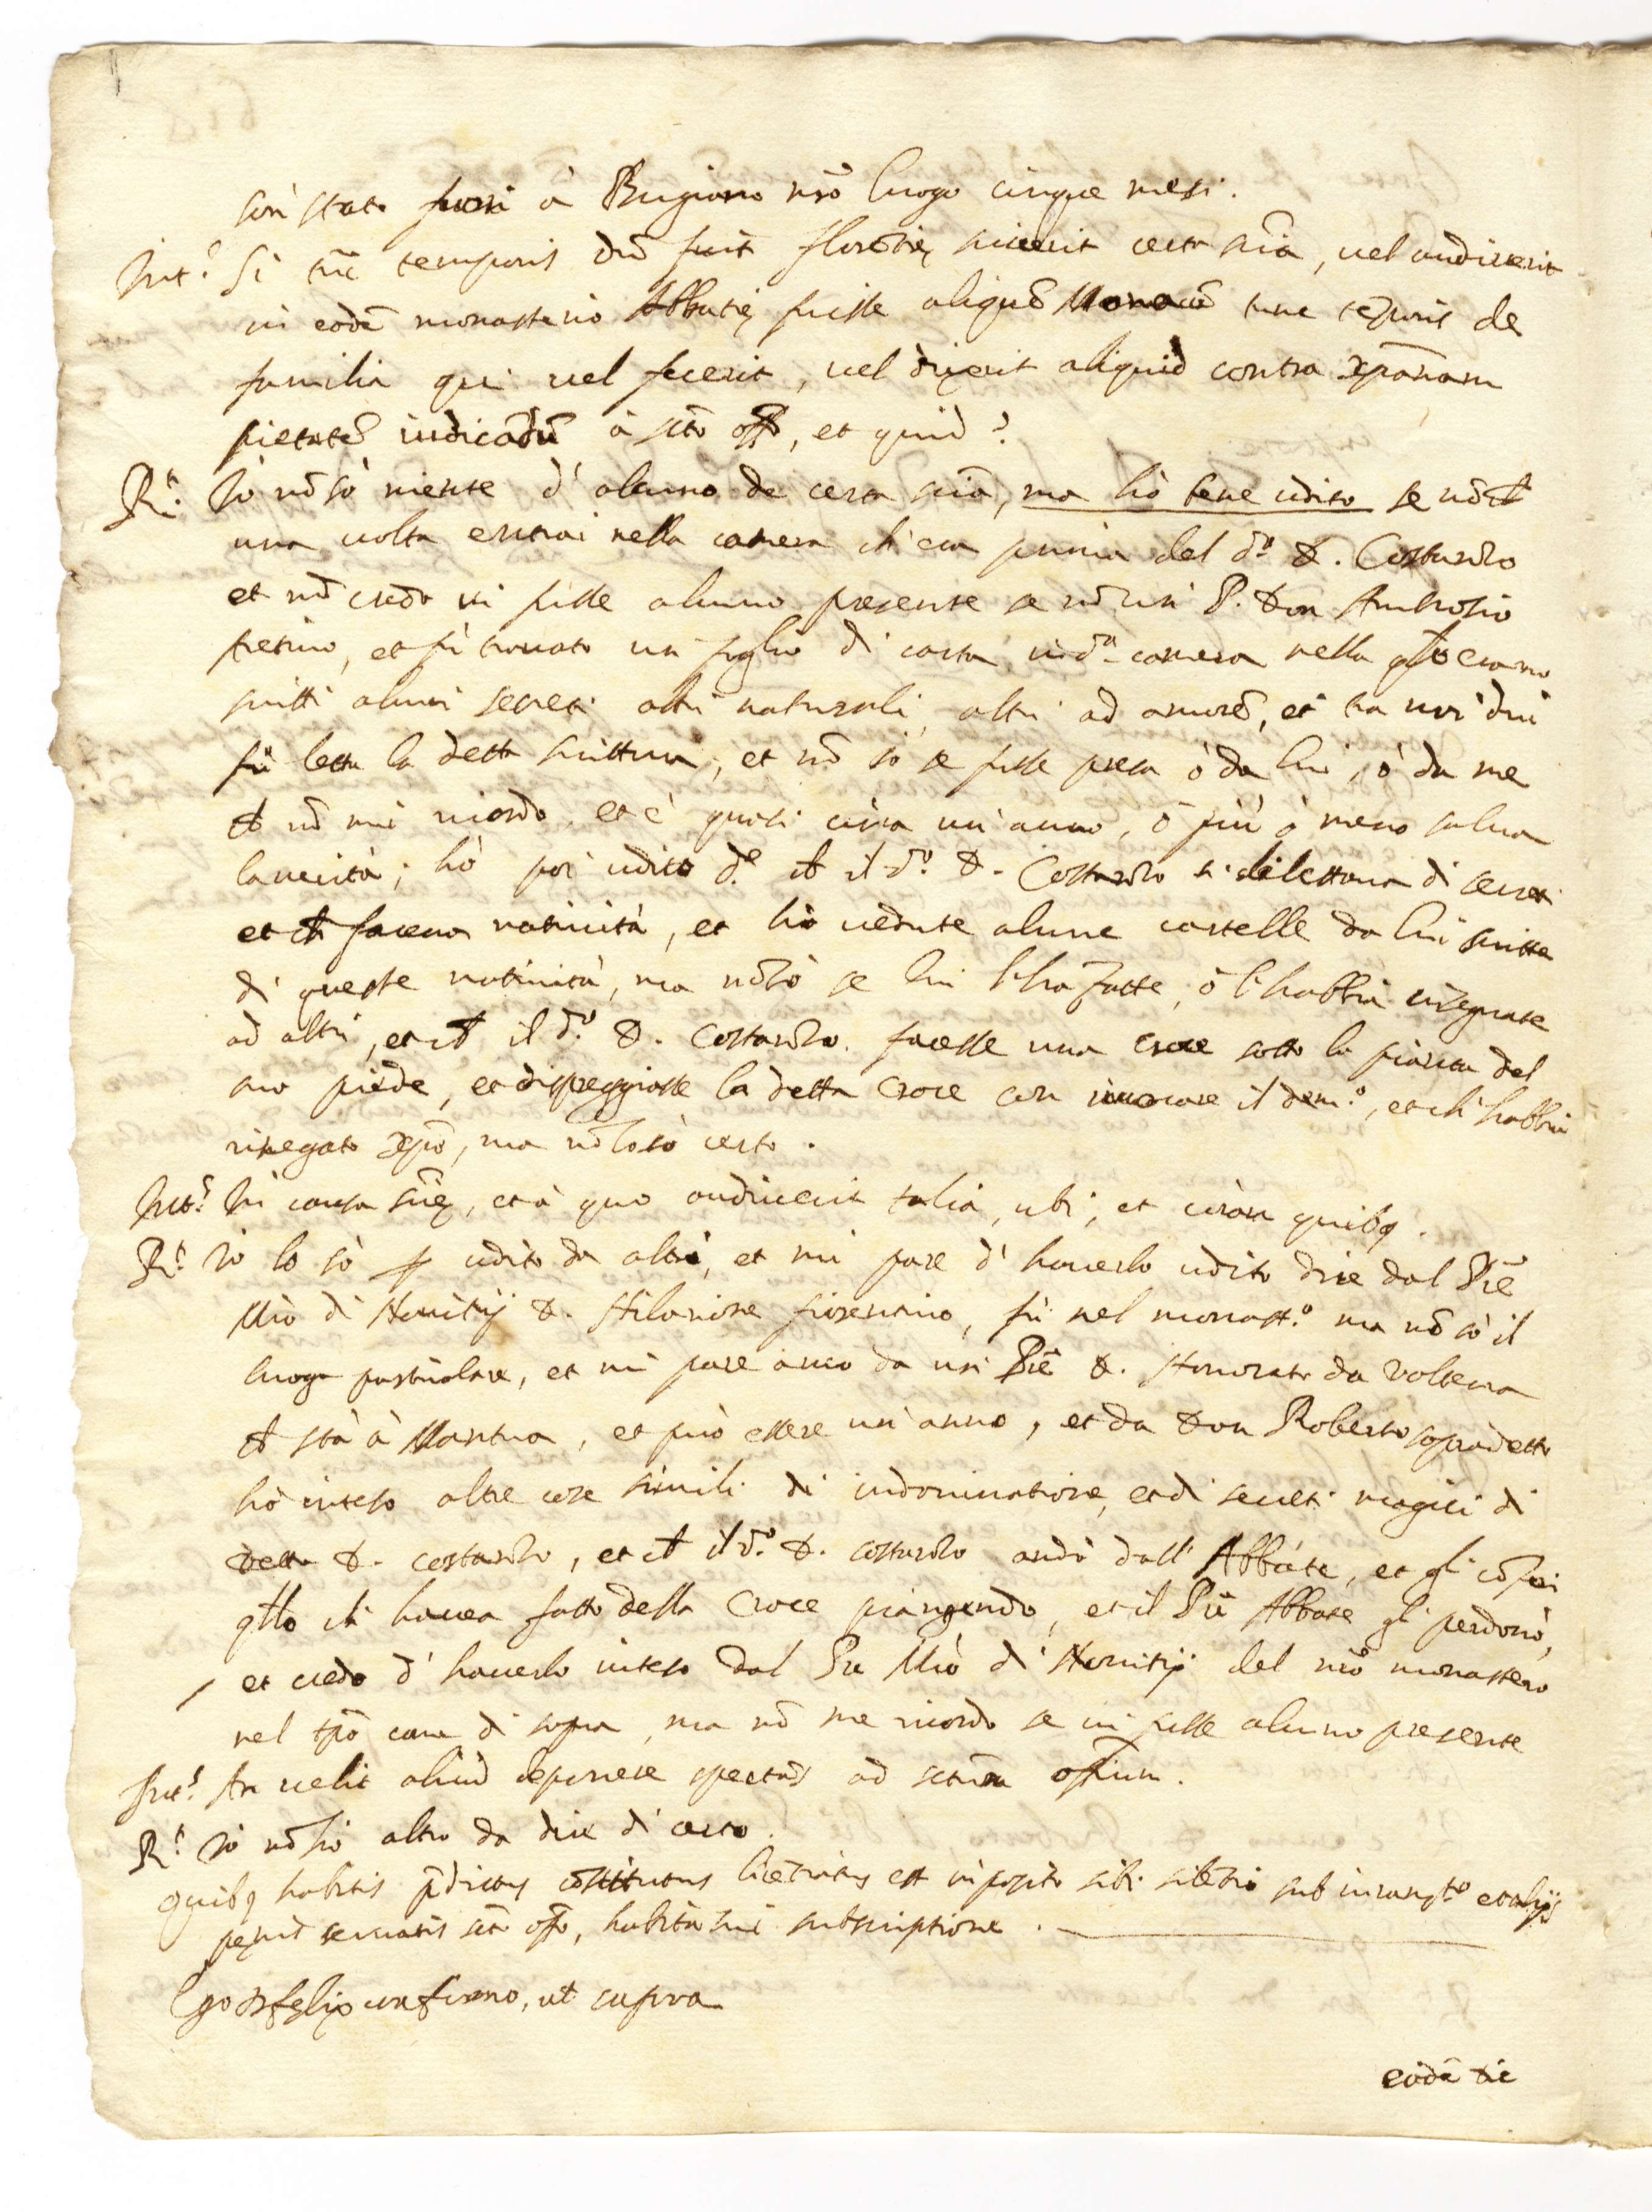 son stato fuori à Bugiano nrō luogo cinque mesi.
Intˢ. Si tūc temporis dū fuit florētię sciverit certa sciā, vel audiverit
in eodē monasterio Abbatię fuisse aliquē Monacū tunc tēporis de
familia qui vel fecerit, vel dixerit aliquid contra xpānam
pietatē iudicādū à sctō offº, et quid?
Rᵗ. Io nō sò niente d'alcuno de certa sciā, ma hò bene udito se nō ch
una volta entrai nella camera ch'era prima del dº. D. Costanzo
et nō credo vi fusse alcuno presente se nō un P. Don Ambrosio
aretino, et fù trovato un foglio di carta in dª. camera nella qle erano
scritti alcuni secreti altri naturali, altri ad amorē, et tra noi dui
fù letta la detta scrittura, et nō sò se fusse presa ò da lui, ò da me
ch nō mi ricordo, et è quasi circa un'anno, ò più ò meno salva
la verità; hò poi udito dᵉ. ch il dº. D. Costanzo si dilettava di secreti
et ch faceva natività, et hò vedute alcune cartelle da lui scritte
di queste natività, ma nō sò se lui l'ha fatte, ò l'habbia insegnate
ad altri, et ch il dº. D. Costanzo facesse una croce sotto la pianta del
suo piede, et dispreggiasse la detta Croce con invocare il demº, et ch'habbia
rinegato xpō, ma nō lo sò certo.
Intˢ. In causa sciē, et à quo audiverit talia, ubi, et corām quibq.
Rᵗ. Io lo sò p udito da altri, et mi pare d'haverlo udito dire dal Prē
Mrō di Novitij D. Hilarione fiorentino, fù nel monastº. ma nō sò il
luogo particolare, et mi pare anco da un Prē D. Honorato da Volterra
ch stà à Mantua, et può essere un'anno, et da Don Roberto sopradetto
hò inteso altre cose simili di indovinatione, et di secreti magici di
detto D. Costanzo, et ch il dº. D. Costanzo andò dall'Abbate, et gli cōferì
qllo ch haveva fatto della Croce piangendo, et il Prē Abbate gli perdonò,
et credo d'haverlo inteso dal Prē Mrō di Novitij del nrō monastero
nel tpō come di sopra, ma nō me ricordo se vi fusse alcuno presente
Intˢ. An velit aliud deponere spectās ad sctūm offium.
Rᵗ. Io nō hò altro da dire di certo.
Quibq habitis pdictus cōstitutus licētiatus est inposito sibi silētio sub iuramᵗº et alijs
pēnis servatis sctō offº, habita sui subscriptione.
Ego D. felix confirmo, ut supra
eodē die